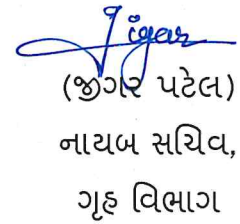 Jigar
(જીગર પટેલ)
નાયબ સચિવ,
ગૃહ વિભાગ